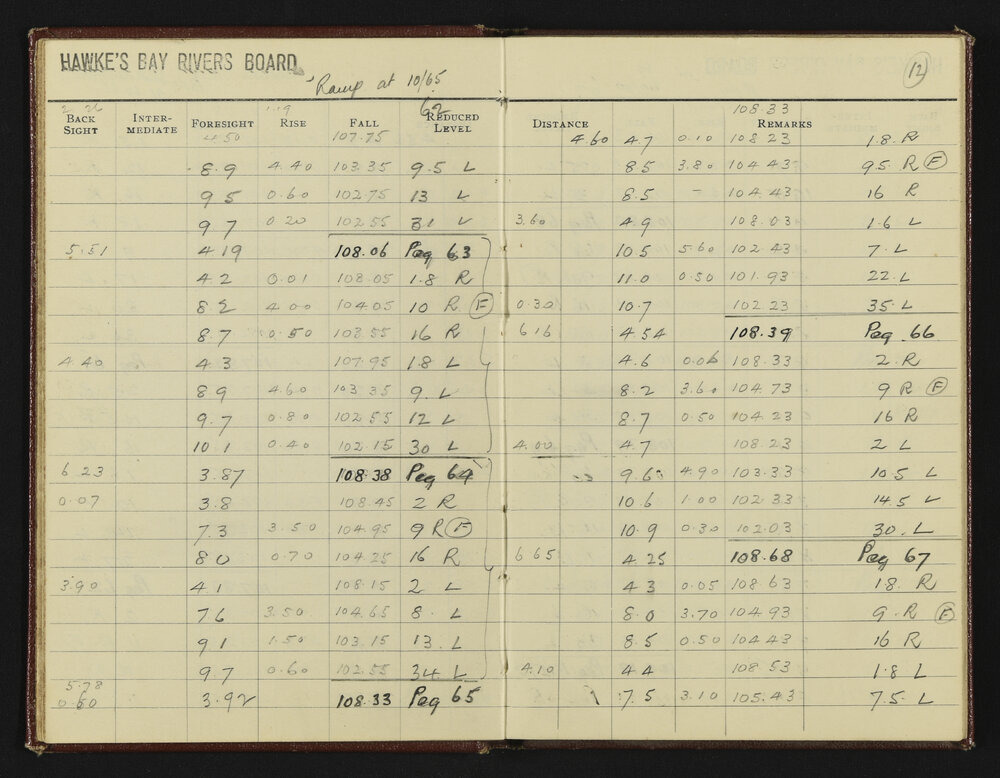 HAWKE'S BAY RIVERS BOARD
Ramp at 10/65
2.26 1.19 62
BACK SIGHT INTER-MEDIATE FORESIGHT RISE FALL REDUCED LEVEL
4.50 107.75
8.9 4.40 103.35 9.5 L
9.5 0.60 102.75 13 L
9.7 0.20 102.55 31 L
5.51 4.19 108.06 Peg 63
4.2 0.01 108.05 1.8 R
8.2 4.00 104.05 10 R F
8.7 0.50 103.55 16 R
4.40 4.3 107.95 1.8 L
8.9 4.60 103.35 9. L
9.7 0.80 102.55 12 L
10.1 0.40 102.15 30 L
6.23 3.87 108.38 Peg 64
0.07 3.8 108.45 2 R
7.3 3.50 104.95 9 R F
8.0 0.70 104.25 16 R
3.90 4.1 108.15 2 L
7.6 3.50 104.65 8. L
9.1 1.50 103.15 13. L
9.7 0.60 102.55 34 L
5.78
0.60 3.92 108.33 Peg 65
12
108.33
DISTANCE REMARKS
4.60 4.7 0.10 108.23 1.8 R
8.5 3.80 104.43 9.5 R F
8.5 – 104.43 16 R
3.60 4.9 108.03 1.6 L
10.5 5.60 102.43 7. L
11.0 0.50 101.93 22. L
0.30 10.7 102.23 35 L
6.16 4.54 108.39 Peg 66
4.6 0.06 108.33 2. R
8.2 3.60 104.73 9 R F
8.7 0.50 104.23 16 R
4.00 4.7 108.23 2 L
9.6 4.90 103.33 10.5 L
10.6 1.00 102.33 14.5 L
10.9 0.30 102.03 30. L
6.65 4.25 108.68 Peg 67
4.3 0.05 108.63 1.8 R
8.0 3.70 104.93 9. R F
8.5 0.50 104.43 16 R
4.10 4.4 108.53 1.8 L
7.5 3.10 105.43 7.5 L